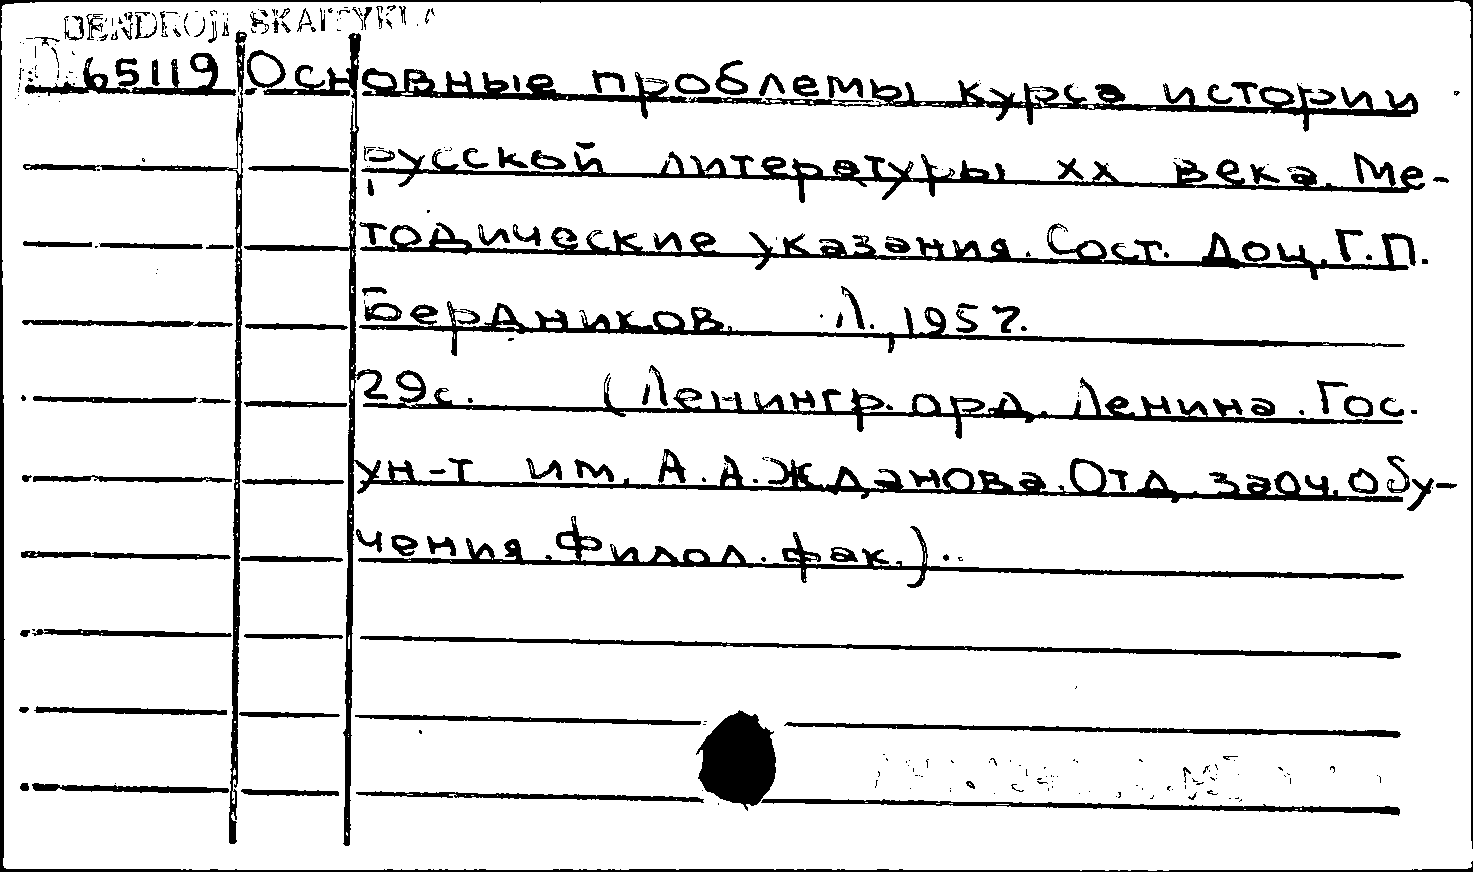 BENDROJI SKAITYKLA
D.65119 Основные проблемы курса истории
русской литературы XX века. Ме-
тодические указания. Сост. Доц. Г.П.
Бердников. Л., 1957.
29с. (Ленингр. орд. Ленина. Гос.
ун-т им. А.А.Жданова. Отд. заоч. обу-
чения. Филол. фак.)..